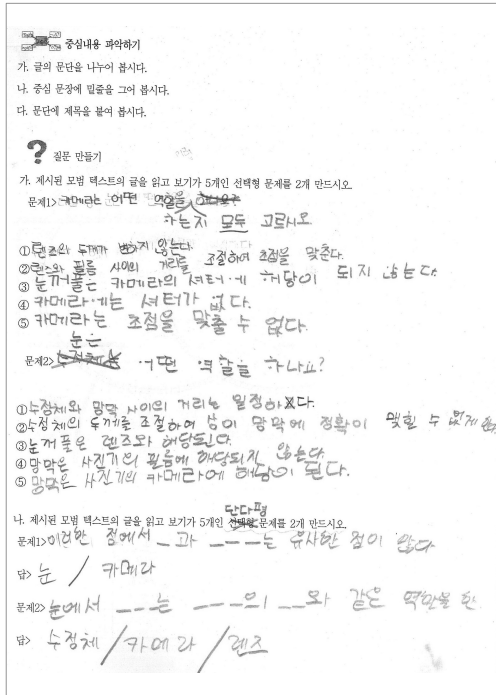 중심내용 파악하기
가. 글의 문단을 나누어 봅시다.
나. 중심 문장에 밑줄을 그어 봅시다.
다. 문단에 제목을 붙여 봅시다.
? 질문 만들기
가. 제시된 모범 텍스트의 글을 읽고 보기가 5개인 선택형 문제를 2개 만드시오.
문제1> 카메라는 어떤 역할을
하는지 모두 고르시오
① 렌즈의 두께가 변하지 않는다.
② 렌즈와 필름 사이의 거리를 조절하여 초점을 맞춘다.
③ 눈꺼풀은 카메라의 셔터에 해당이 되지 않는다.
④ 카메라에는 셔터가 없다.
⑤ 카메라는 초점을 맞출 수 없다.
눈은
문제2> 어떤 역할을 하나요?
① 수정체와 망막 사이의 거리는 일정하다.
② 수정체의 두께를 조절하여 상이 망막에 정확이 맺힐 수 없게 한다
③ 눈꺼풀은 렌즈와 해당된다.
④ 망막은 사진기의 필름에 해당되지 않는다.
⑤ 망막은 사진기의 카메라에 해당이 된다.
단답형
나. 제시된 모범 텍스트의 글을 읽고 보기가 5개인 선택형 문제를 2개 만드시오.
문제1> 이러한 점에서 _과 _ _ _는 유사한 점이 많다
답> 눈 / 카메라
문제2> 눈에서 _ _ _는 _ _ _의 _ _와 같은 역할을 한
답> 수정체 / 카메라 / 렌즈